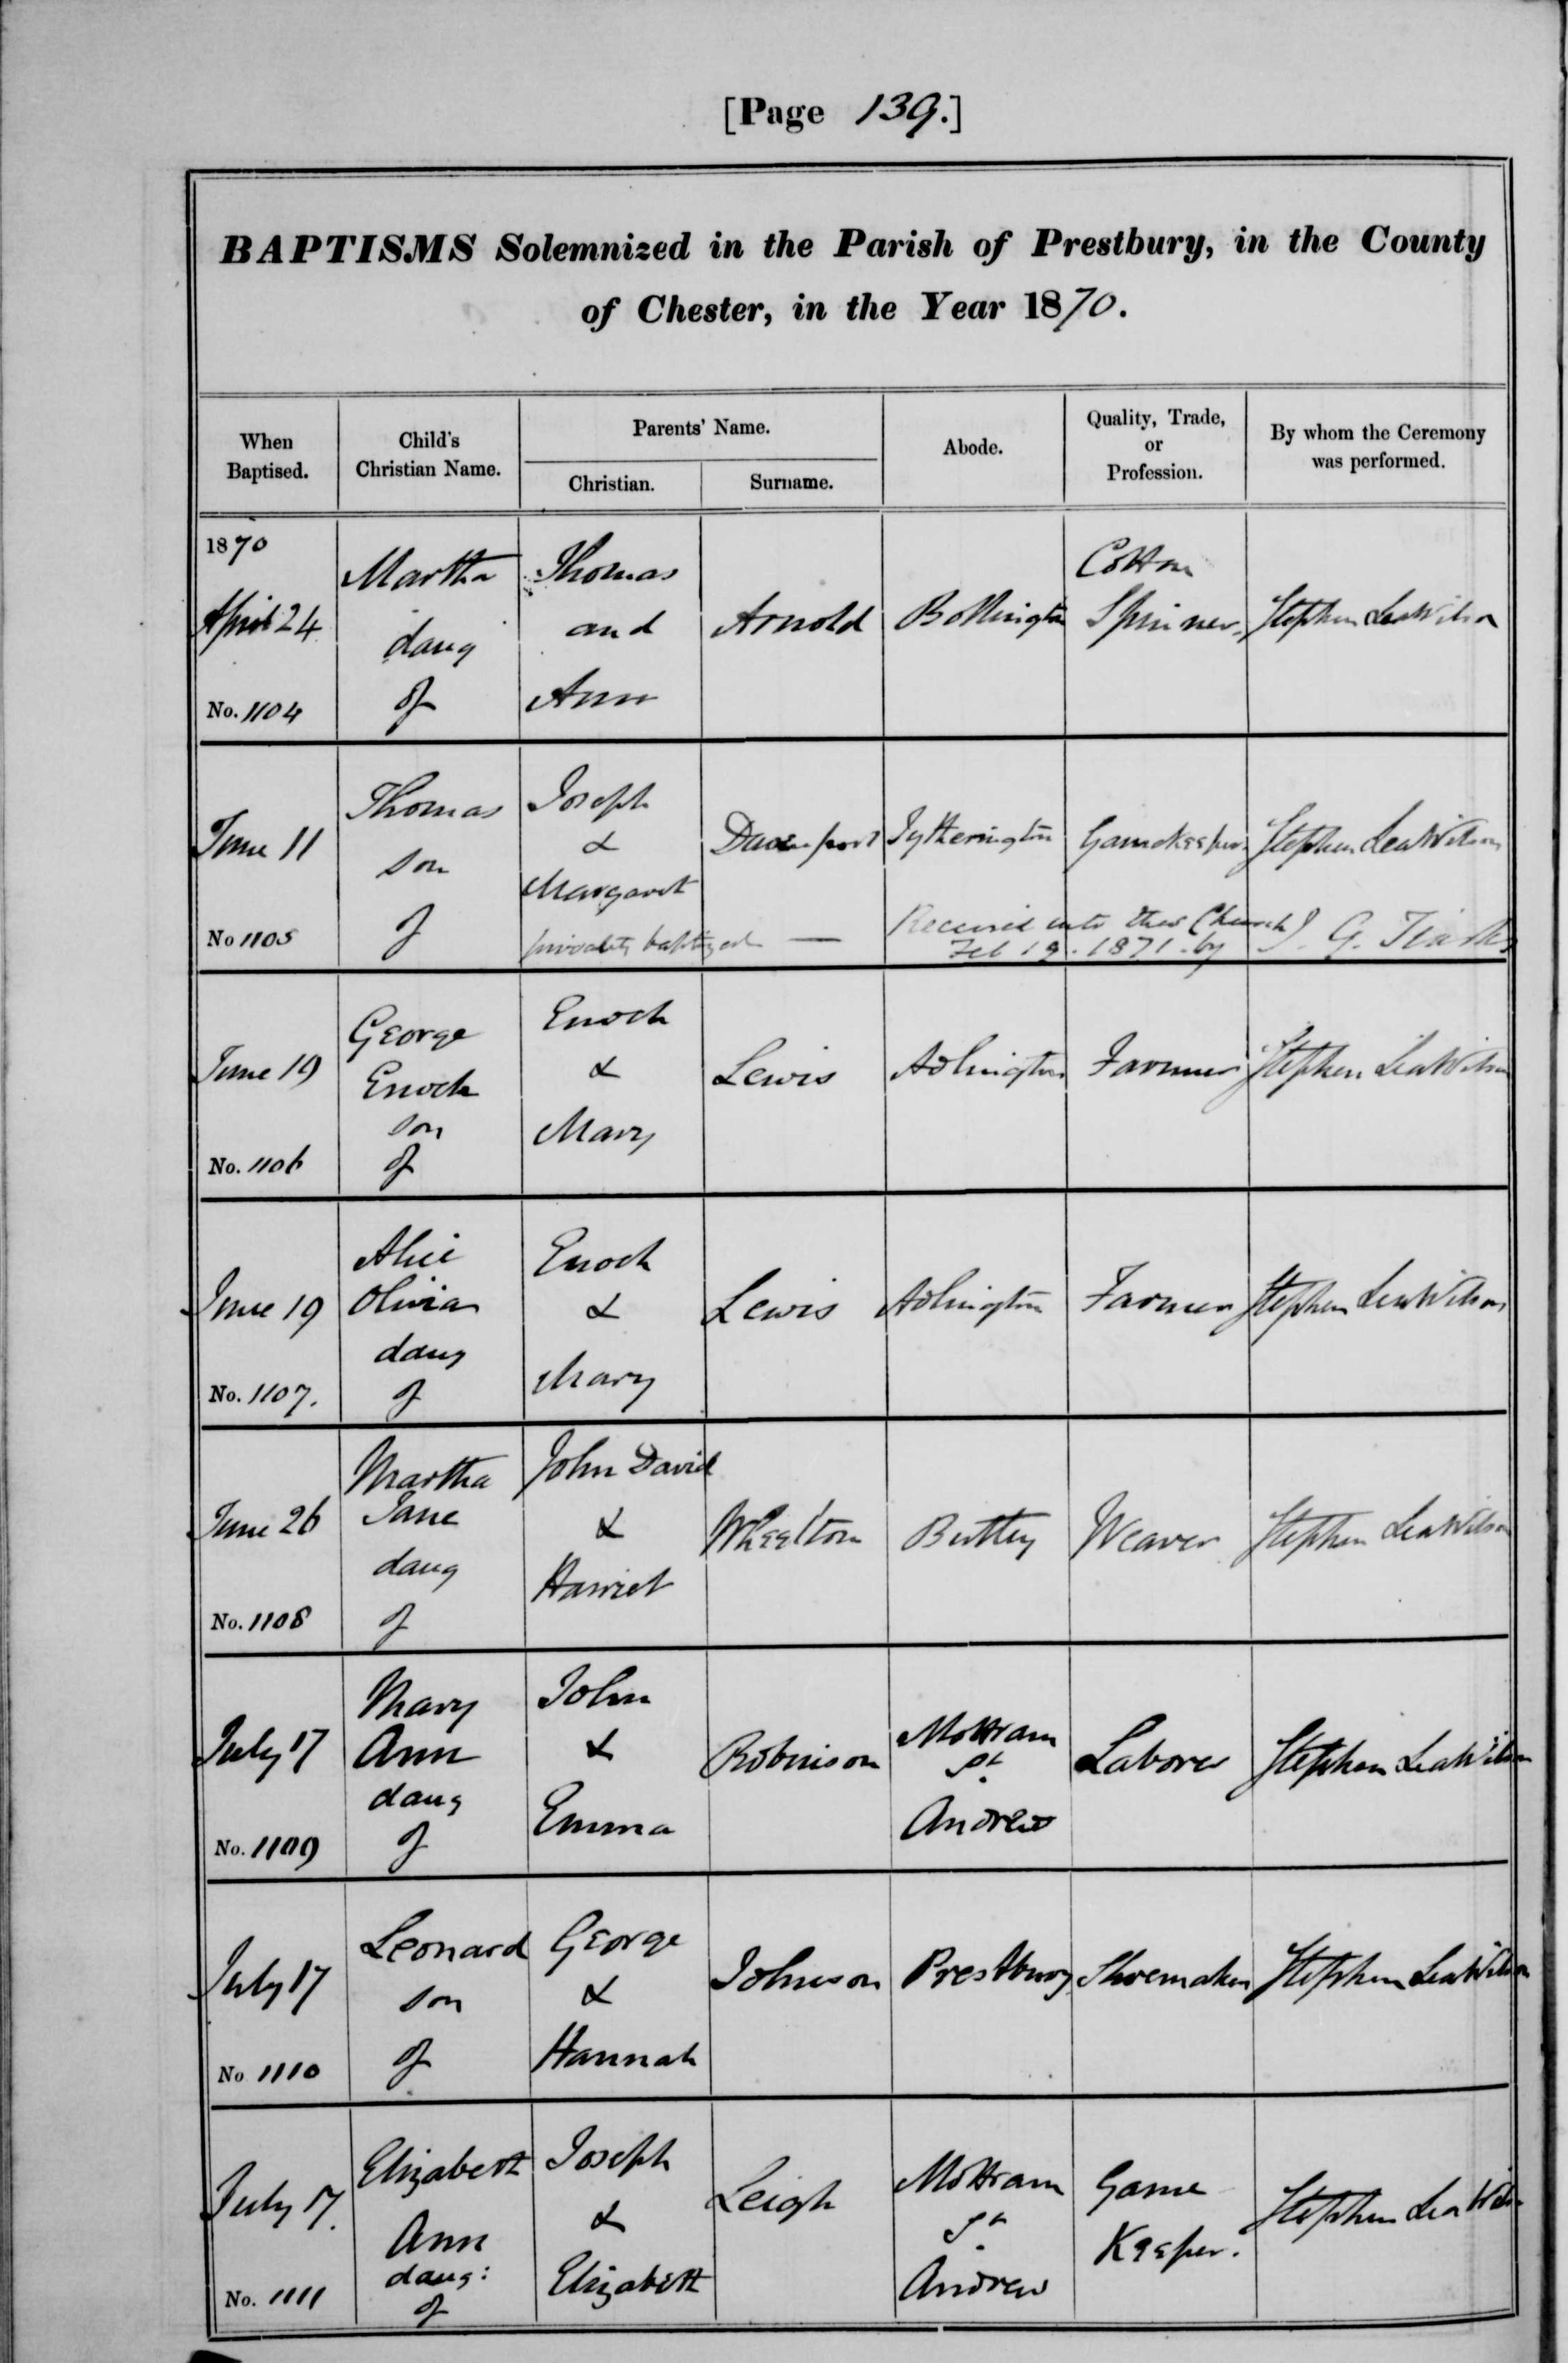 [Page 139.]
BAPTISMS Solemnized in the Parish of Prestbury, in the County
of Chester, in the Year 1870.
When Baptised.
Child's Christian Name.
Parents' Name.
Christian.
Surname.
Abode.
Quality, Trade, or Profession.
By whom the Ceremony was performed.
1870
April 24
No. 1104
Martha
daug
of
Thomas
and
Ann
Arnold
Bollington
Cotton
Spinner
Stephen Lea Wilson
June 11
No 1105
Thomas
son
of
Joseph
&
Margaret
privately baptized —
Davenport
Tytherington
Gamekeeper
Stephen Lea Wilson
Received into the Church
Feb 19. 1871 by
G. Tiarks
June 19
No. 1106
George
Enoch
son
of
Enoch
&
Mary
Lewis
Adlington
Farmer
Stephen Lea Wilson
June 19
No. 1107.
Alice
Olivia
daug
of
Enoch
&
Mary
Lewis
Adlington
Farmer
Stephen Lea Wilson
June 26
No. 1108
Martha
Jane
daug
of
John David
&
Harriet
Wheelton
Butley
Weaver
Stephen Lea Wilson
July 17
No. 1109
Mary
Ann
daug
of
John
&
Emma
Robinson
Mottram
St.
Andrew
Laborer
Stephen Lea Wilson
July 17
No 1110
Leonard
son
of
George
&
Hannah
Johnson
Prestbury
Shoemaker
Stephen Lea Wilson
July 17.
No. 1111
Elizabeth
Ann
daug:
of
Joseph
&
Elizabeth
Leigh
Mottram
St.
Andrew
Game
Keeper.
Stephen Lea Wilson